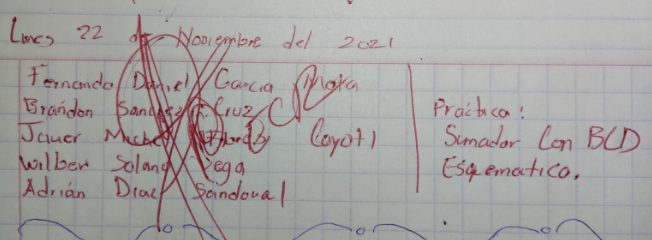 Lunes 22 de Noviembre del 2021
Fernando Daniel Garcia Mota
Brandon Sanchez Cruz
Javier Michel Coyotl
Wilber Solano Vega
Adrián Diaz Sandoval
Practica:
Sumador Con BCD
Esqematico.